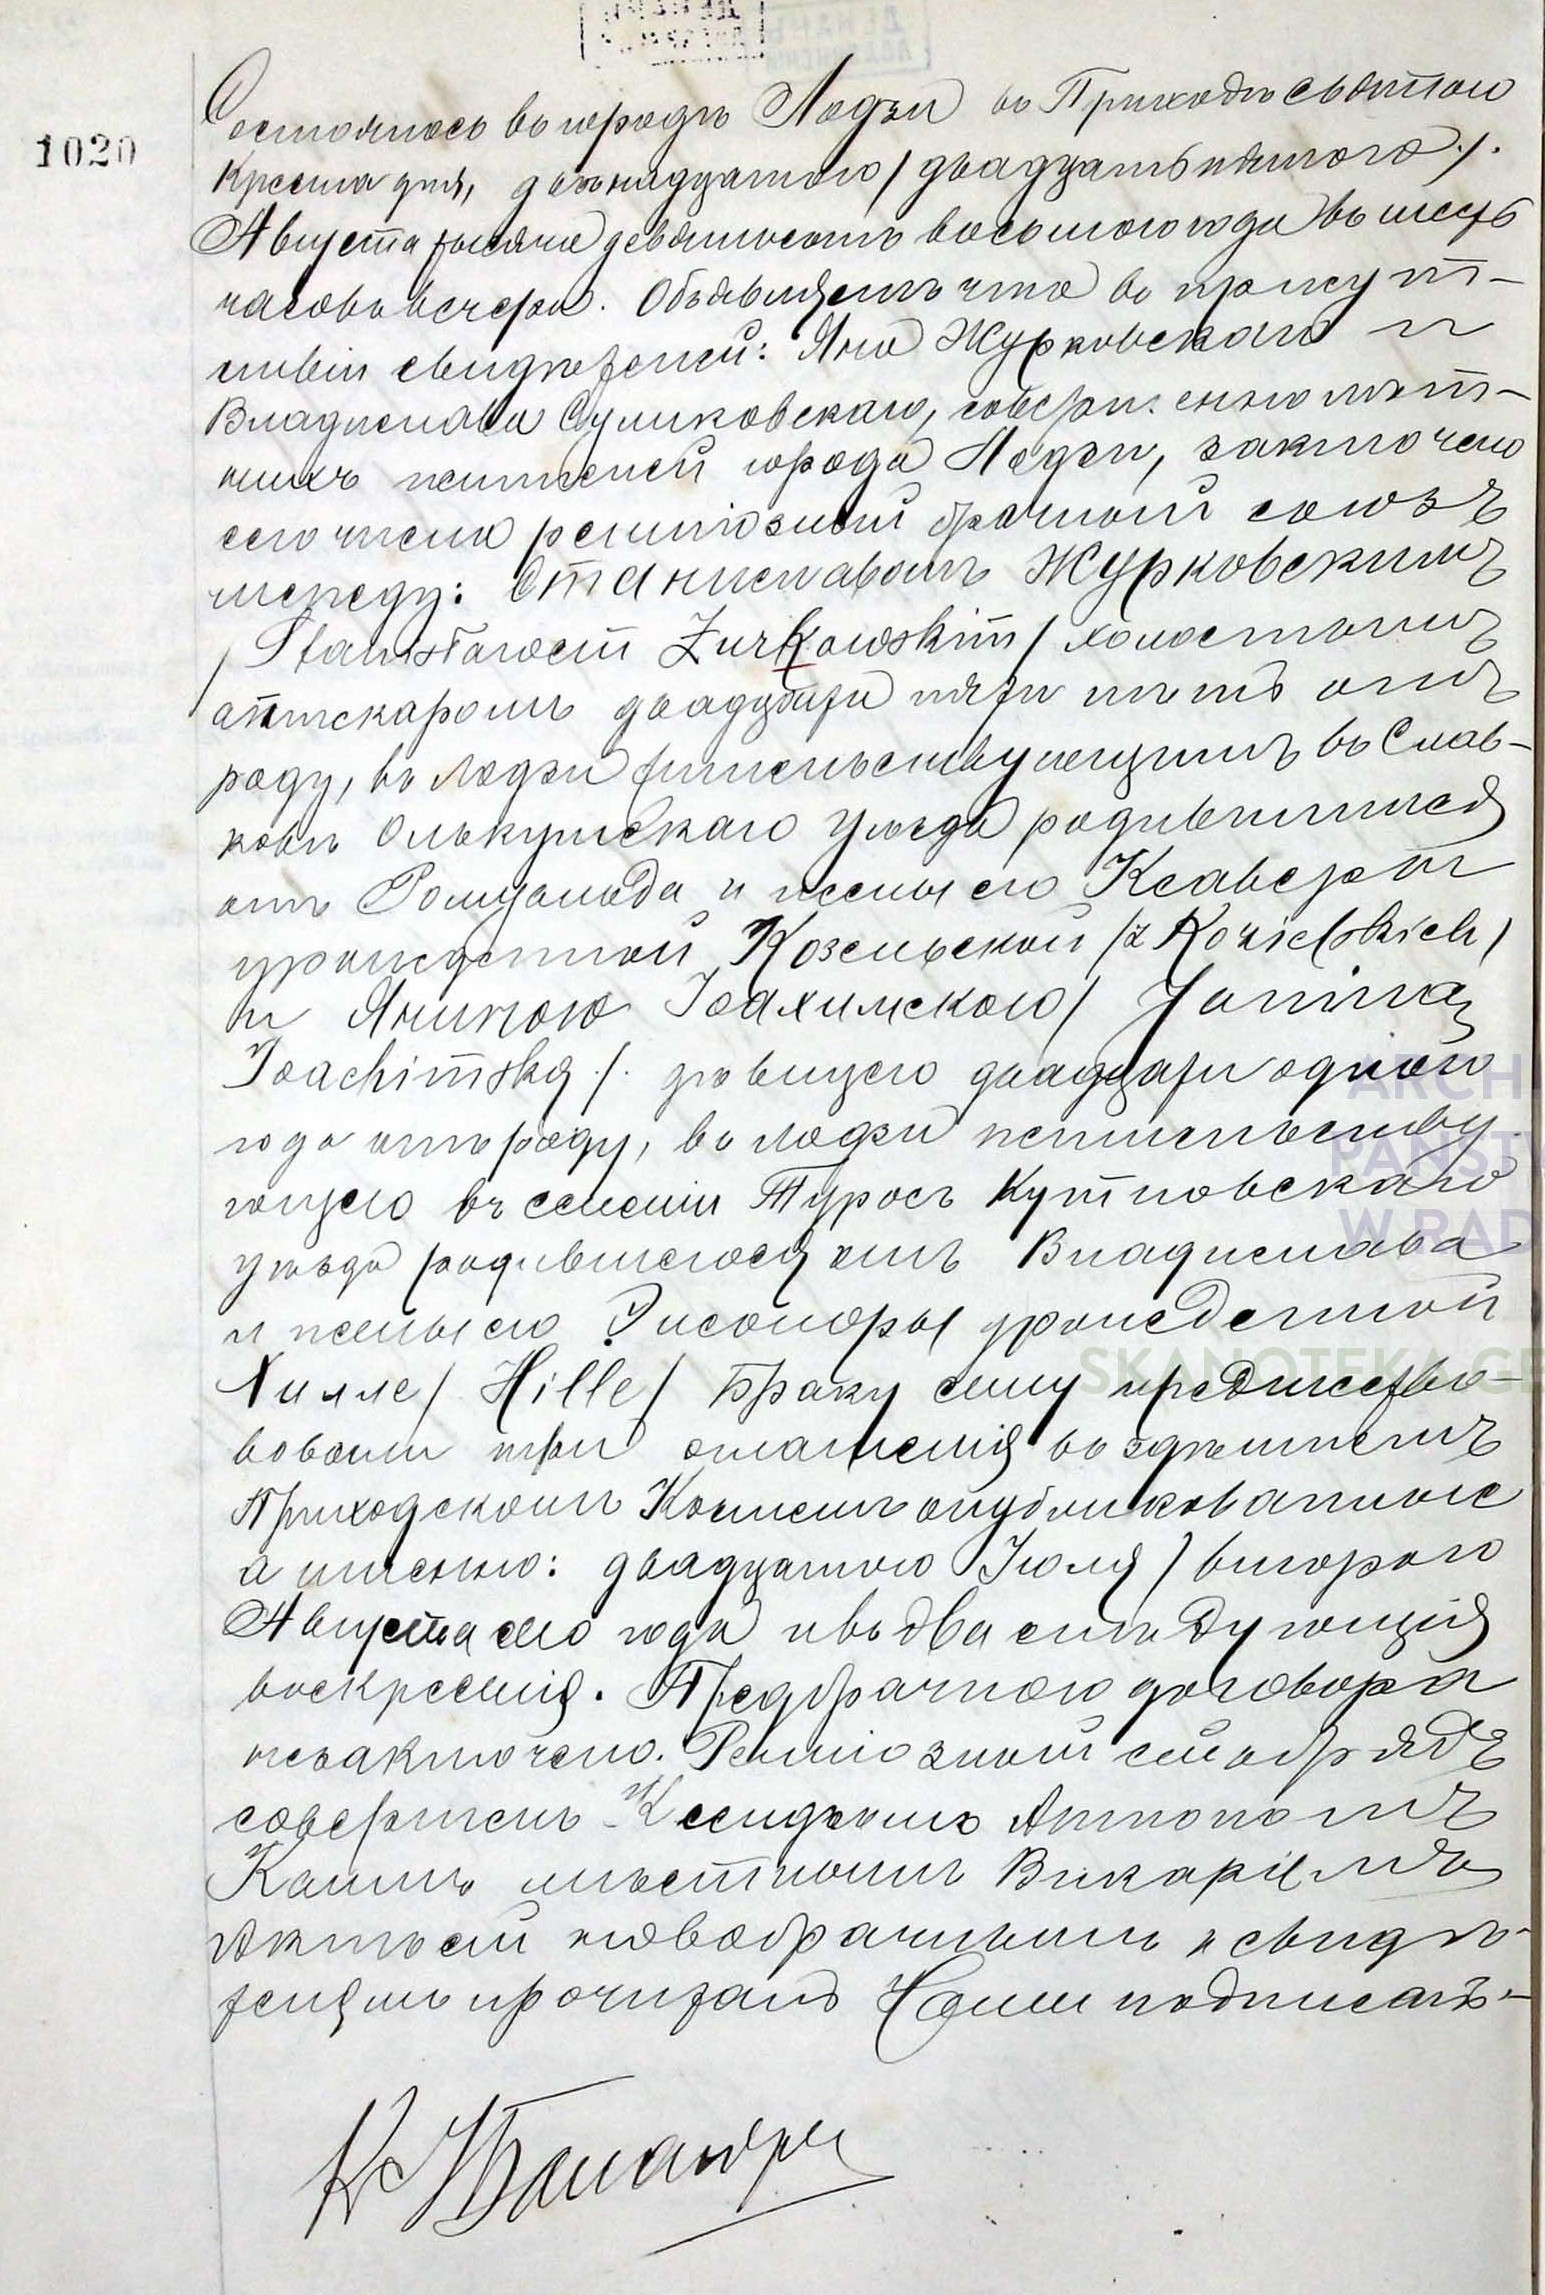 1020
Состоялось въ городѣ Лодзи въ Приходѣ Святого
Креста дня, двѣнадцатого / двадцать пятого /.
Августа тысяча девятьсотъ восьмого года въ шесть
часовъ вечера. Объявляемъ что въ присут-
ствіи свидѣтелей: Яна Журковскаго и
Владислава Суликовскаго, совершеннолѣт-
нихъ жителей города Лодзи, заключено
сего числа религіозный брачный союзъ
между: Станиславомъ Журковскимъ
/ Stanisławem Żurkowskim / холостымъ
аптекаремъ двадцати пяти лѣтъ отъ
роду, въ Лодзи жительствующимъ въ Слав-
ковѣ Олькушскаго уѣзда родившимся
отъ Ромуальда и жены его Ксаверы
урожденной Козельской / z Kozielskich /
и Яниною Іоахимскою / Janiną
Joachimską /. дѣвицею двадцати одного
года отъ роду, въ Лодзи жительству
ющею въ селеніи Туросъ Кутновскаго
уѣзда родившеюся отъ Владислава
и жены его Элеоноры урожденной
Хилле / Hille / Браку сему предшество-
вовали три оглашенія въ здѣшнемъ
Приходскомъ Костелѣ опубликованные
а именно: двадцатого Іюля / второго
Августа сего года и въ два слѣдующія
воскресенія. Предбрачного договора
не заключено. Религіозный сей обрядъ
совершенъ Ксендзомъ Антономъ
мѣстнымъ Викаріемъ
Актъ сей новобрачнымъ и свидѣ-
телямъ прочитанъ Нами подписанъ.-